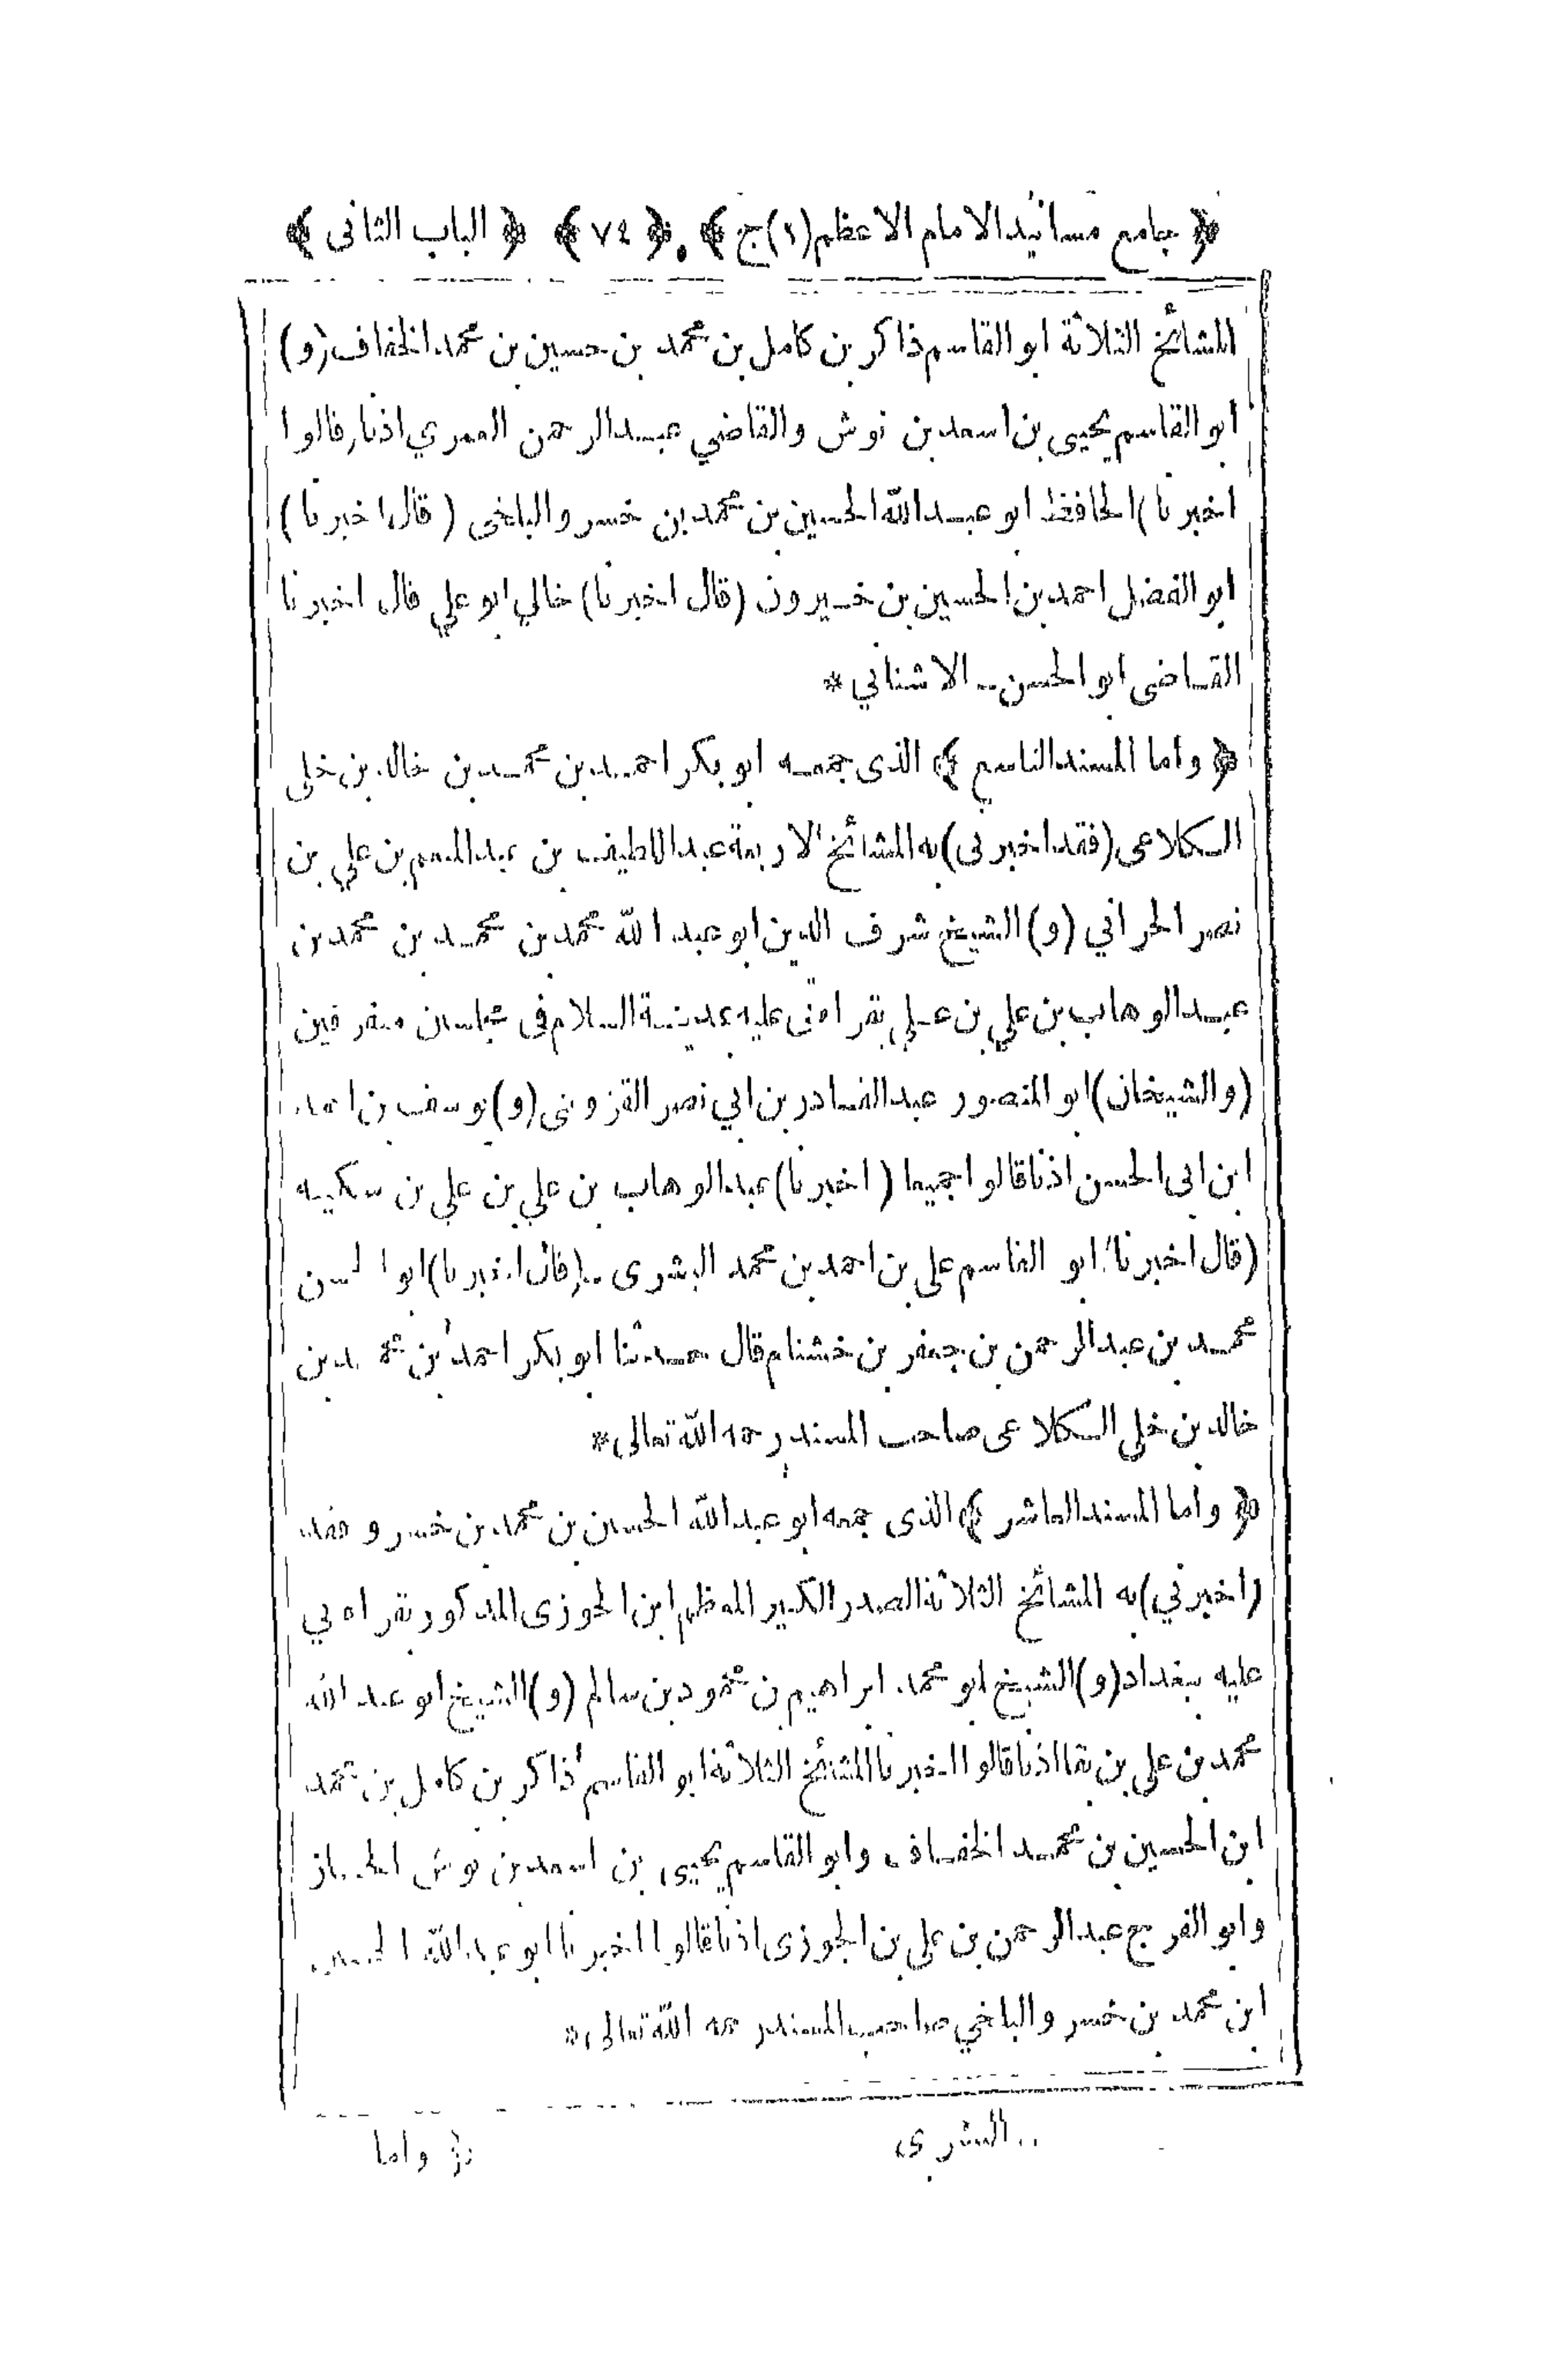 ﴿ جامع مسانيد الامام الاعظم (١) ج ﴾ ﴿ ٧٤ ﴾ ﴿ الباب الثانى ﴾
المشائخ الثلاثة ابو القاسم ذاكر بن كامل بن محمد بن حسين بن محمد الخفاف (و)
ابو القاسم يحيى بن اسعد بن نوش والقاضي عبد الرحمن العمري اذنا (قالوا
اخبرنا) الحافظ ابو عبد الله الحسين بن محمد بن خسرو البلخى (قال اخبرنا)
ابو الفضل احمد بن الحسين بن خيرون (قال اخبرنا) خالي ابو علي قال اخبرنا
القاضى ابو الحسن.. الاشناني *
﴿ واما المسند التاسع ﴾ الذى جمعه ابو بكر احمد بن محمد بن خالد بن خلى
الكلاعى (فقد اخبرنى) به المشائخ الاربعة عبد اللطيف بن عبد المنعم بن علي بن
نصر الحراني (و) الشيخ شرف الدين ابو عبد الله محمد بن محمد بن محمد بن
عبد الوهاب بن علي بن علي بقراءتى عليه بمدينة السلام فى مجلسين متفرقين
(والشيخان) ابو المنصور عبد القادر بن ابي نصر القزوينى (و) يوسف بن احمد
ابن ابى الحسن اذنا قالوا جميعا (اخبرنا) عبد الوهاب بن علي بن علي بن سكينه
(قال اخبرنا) ابو القاسم على بن احمد بن محمد البشرى.. (قال اخبرنا) ابو الحسن
محمد بن عبد الرحمن بن جعفر بن خشنام قال حدثنا ابو بكر احمد بن محمد بن
خالد بن خلى الكلاعى صاحب المسند رحمه الله تعالى *
﴿ واما المسند العاشر ﴾ الذى جمعه ابو عبد الله الحسين بن محمد بن خسرو فقد
(اخبرني) به المشائخ الثلاثة الصدر الكبير المعظم ابن الجوزى المذكور بقراءتي
عليه ببغداد (و) الشيخ ابو محمد ابراهيم بن محمود بن سالم (و) الشيخ ابو عبد الله
محمد بن علي بن بقا اذنا قالوا اخبرنا المشائخ الثلاثة ابو القاسم ذاكر بن كامل بن محمد
ابن الحسين بن محمد الخفاف وابو القاسم يحيى بن اسعد بن نوش
وابو الفرج عبد الرحمن بن علي بن الجوزى اذنا قالوا اخبرنا ابو عبد الله الحسين
ابن محمد بن خسرو البلخي صاحب المسند رحمه الله تعالى *
..السرى
﴿ واما